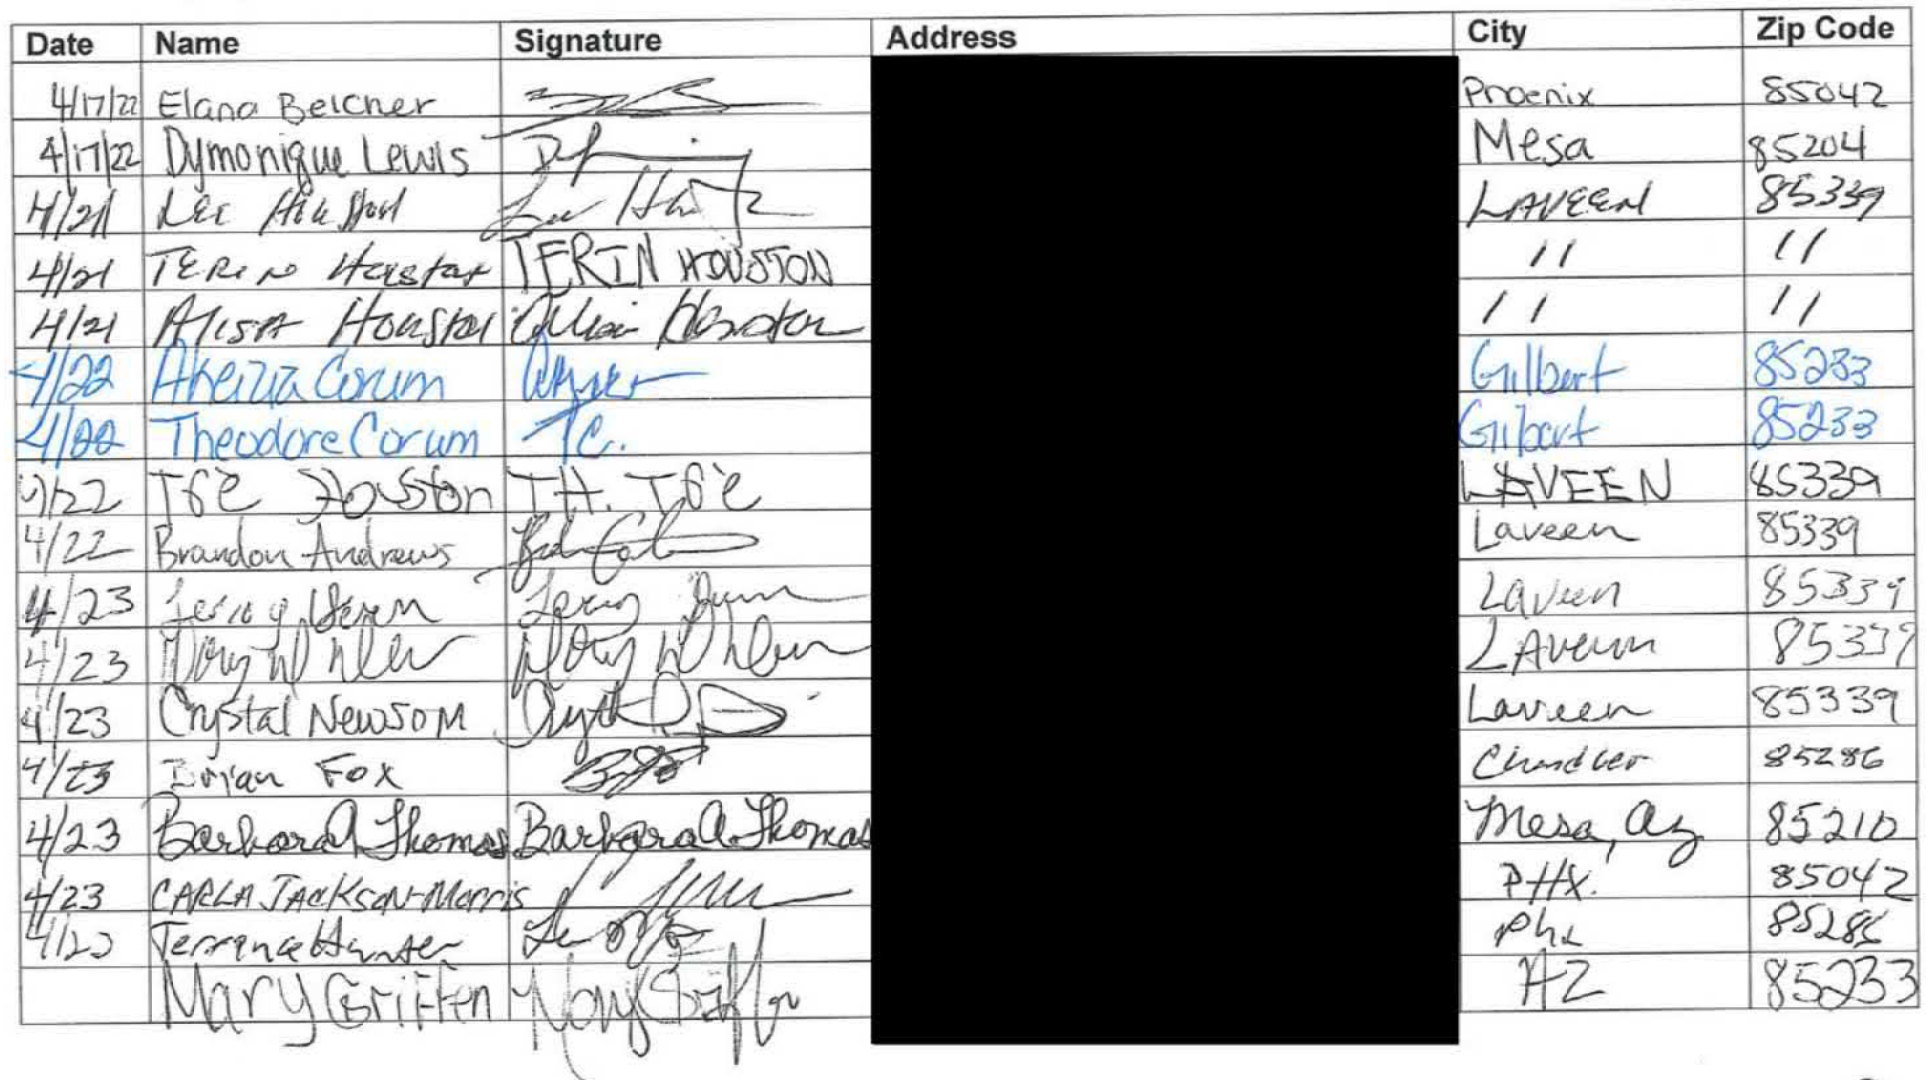 Date Name Signature Address City Zip Code
4/17/22 Elana Belcher Phoenix 85042
4/17/22 Dymonique Lewis Mesa 85204
4/21 Lee Houston LAVEEN 85339
4/21 TERIN Houston TERIN HOUSTON 11 11
4/21 Alisa Houston Alisa Houston 11 11
4/22 Corum Gilbert 85233
4/22 Theodore Corum TC. Gilbert 85233
/22 Houston T.H. LAVEEN 85339
4/22 Brandon Andrews Laveen 85339
4/23 Laveen 85339
4/23 LAveen 85339
4/23 Crystal Newsom Laveen 85339
4/23 Brian Fox Chandler 85286
4/23 Barbara A Thomas Barbara A Thomas Mesa, Az 85210
4/23 CARLA JACKSON-Morris PHX. 85042
4/23 Terrance Hunter Phx 85286
Mary Griffen AZ 85233